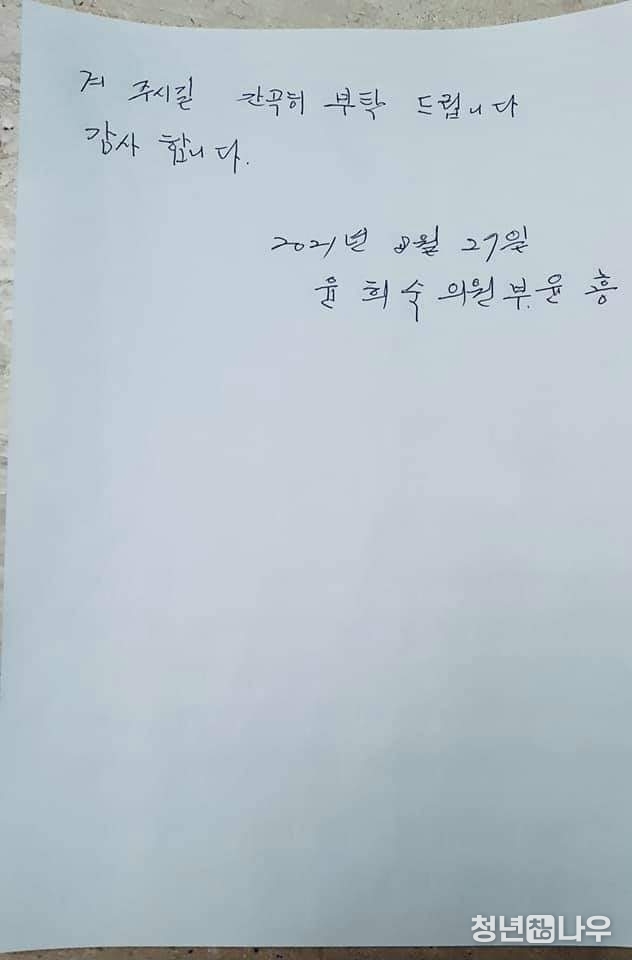 겨 주시길 간곡히 부탁 드립니다
감사 합니다.
2021년 8월 27일
윤 희 숙 의원 부. 윤 흥
청년창나우